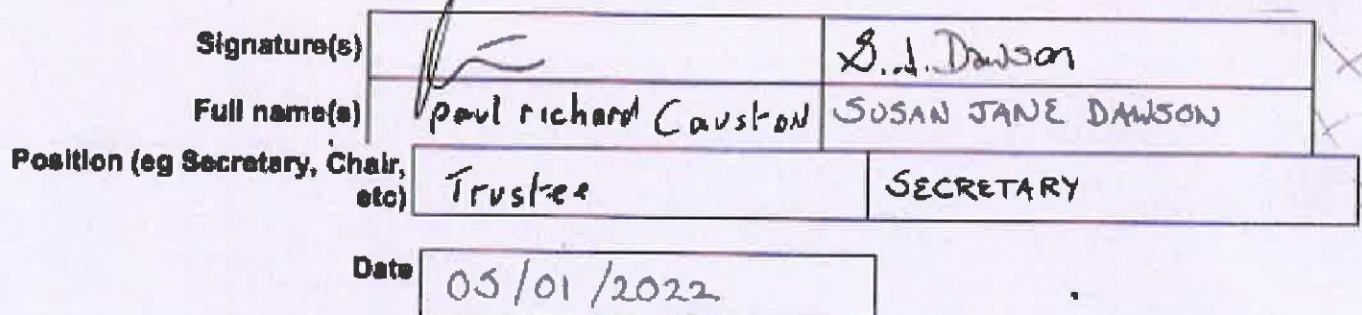 Signature(s) S. J. Dawson
Full name(s) paul richard Causton SUSAN JANE DAWSON
Position (eg Secretary, Chair,
etc) Trustee SECRETARY
Date 05/01/2022